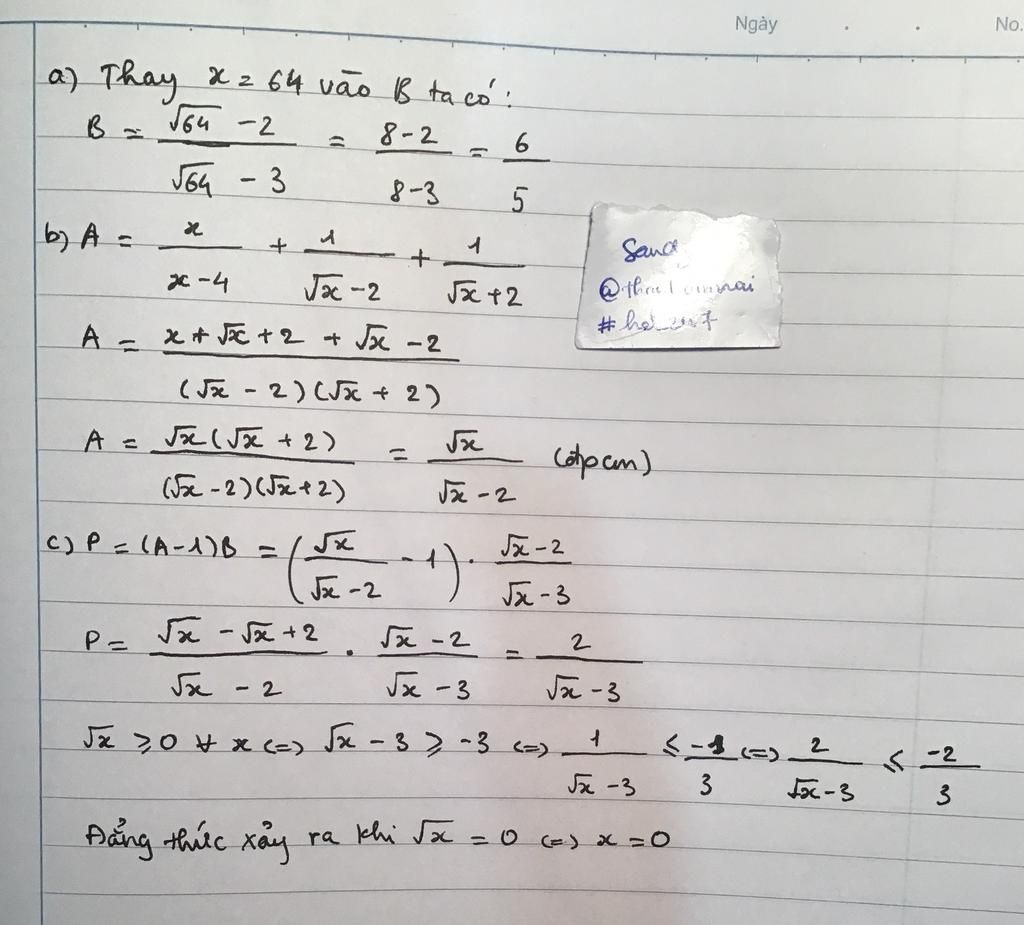 Ngày . . No.
a) Thay x = 64 vào B ta có:
B = (√64 - 2)/(√64 - 3) = (8-2)/(8-3) = 6/5
b) A = x/(x-4) + 1/(√x - 2) + 1/(√x + 2)
A = (x + √x + 2 + √x - 2)/((√x - 2)(√x + 2))
A = (√x(√x + 2))/((√x - 2)(√x + 2)) = √x/(√x - 2) (đpcm)
c) P = (A-1)B = (√x/(√x - 2) - 1) . (√x - 2)/(√x - 3)
P = (√x - √x + 2)/(√x - 2) . (√x - 2)/(√x - 3) = 2/(√x - 3)
√x ≥ 0 ∀ x <=> √x - 3 ≥ -3 <=> 1/(√x - 3) ≤ -1/3 <=> 2/(√x - 3) ≤ -2/3
Đẳng thức xảy ra khi √x = 0 <=> x = 0